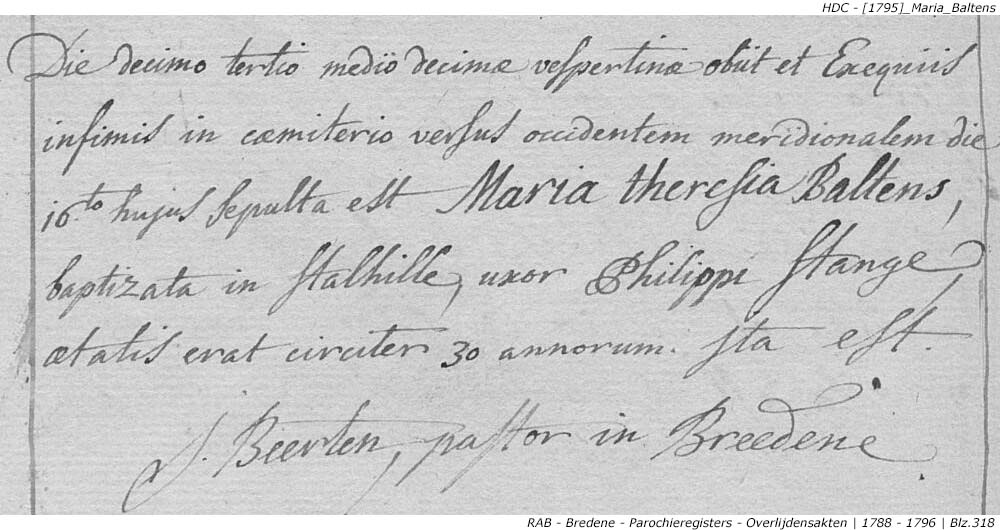 HDC - [1795]_Maria_Baltens
Die decimo tertio mediö decimæ vespertinæ obiit et Exequiis
infimis in cœmiterio versus occidentem meridionalem die
16.to hujus sepulta est Maria theresia Baltens,
baptizata in Stalhille, uxor Philippi Stange,
ætatis erat circiter 30 annorum. Ita est.
J. Beerten, pastor in Breedene
RAB - Bredene - Parochieregisters - Overlijdensakten | 1788 - 1796 | Blz.318